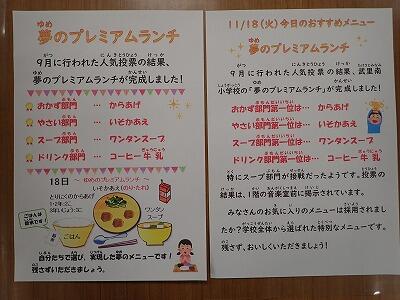 夢のプレミアムランチ
ゆめ
9月に行われた人気投票の結果、
がつ おこな にんきとうひょう けっか
夢のプレミアムランチが完成しました!
ゆめ かんせい
おかず部門 … からあげ
やさい部門 … いそかあえ
スープ部門 … ワンタンスープ
ドリンク部門 … コーヒー牛乳
18日 ~ ゆめのプレミアムランチ ~
いそかあえ(のりたれ)
とりにくのからあげ
ワンタン
スープ
ごはん
自分たちで選び、実現した夢のメニューです!
残さずいただきましょう。
11/18(火)今日のおすすめメニュー
ゆめ
夢のプレミアムランチ
9月に行われた人気投票の結果、武里南
小学校の「夢のプレミアムランチ」が完成しました!
おかず部門第一位は… からあげ
やさい部門第一位は… いそかあえ
スープ部門第一位は… ワンタンスープ
ドリンク部門第一位は… コーヒー牛乳
特にスープ部門が接戦だったようです。投票の
結果は、1階の音楽室前に掲示されています。
みなさんのお気に入りのメニューは採用されまし
たか?学校全体から選ばれた特別なメニューです。
残さず、おいしくいただきましょう!